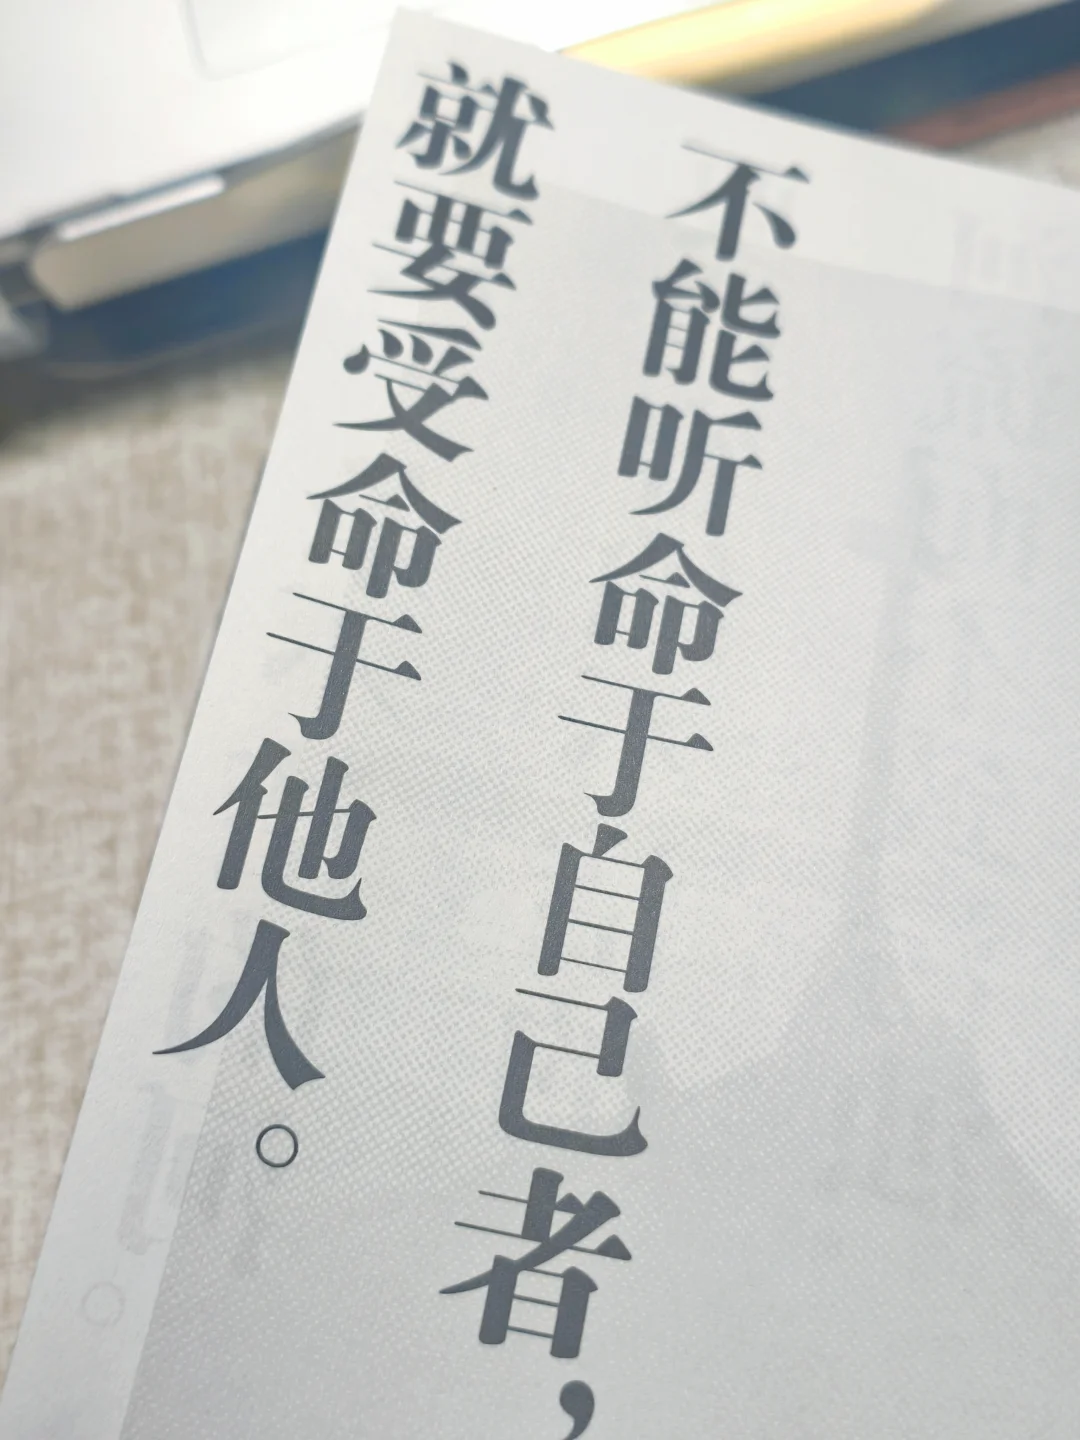 不能听命于自己者，
就要受命于他人。